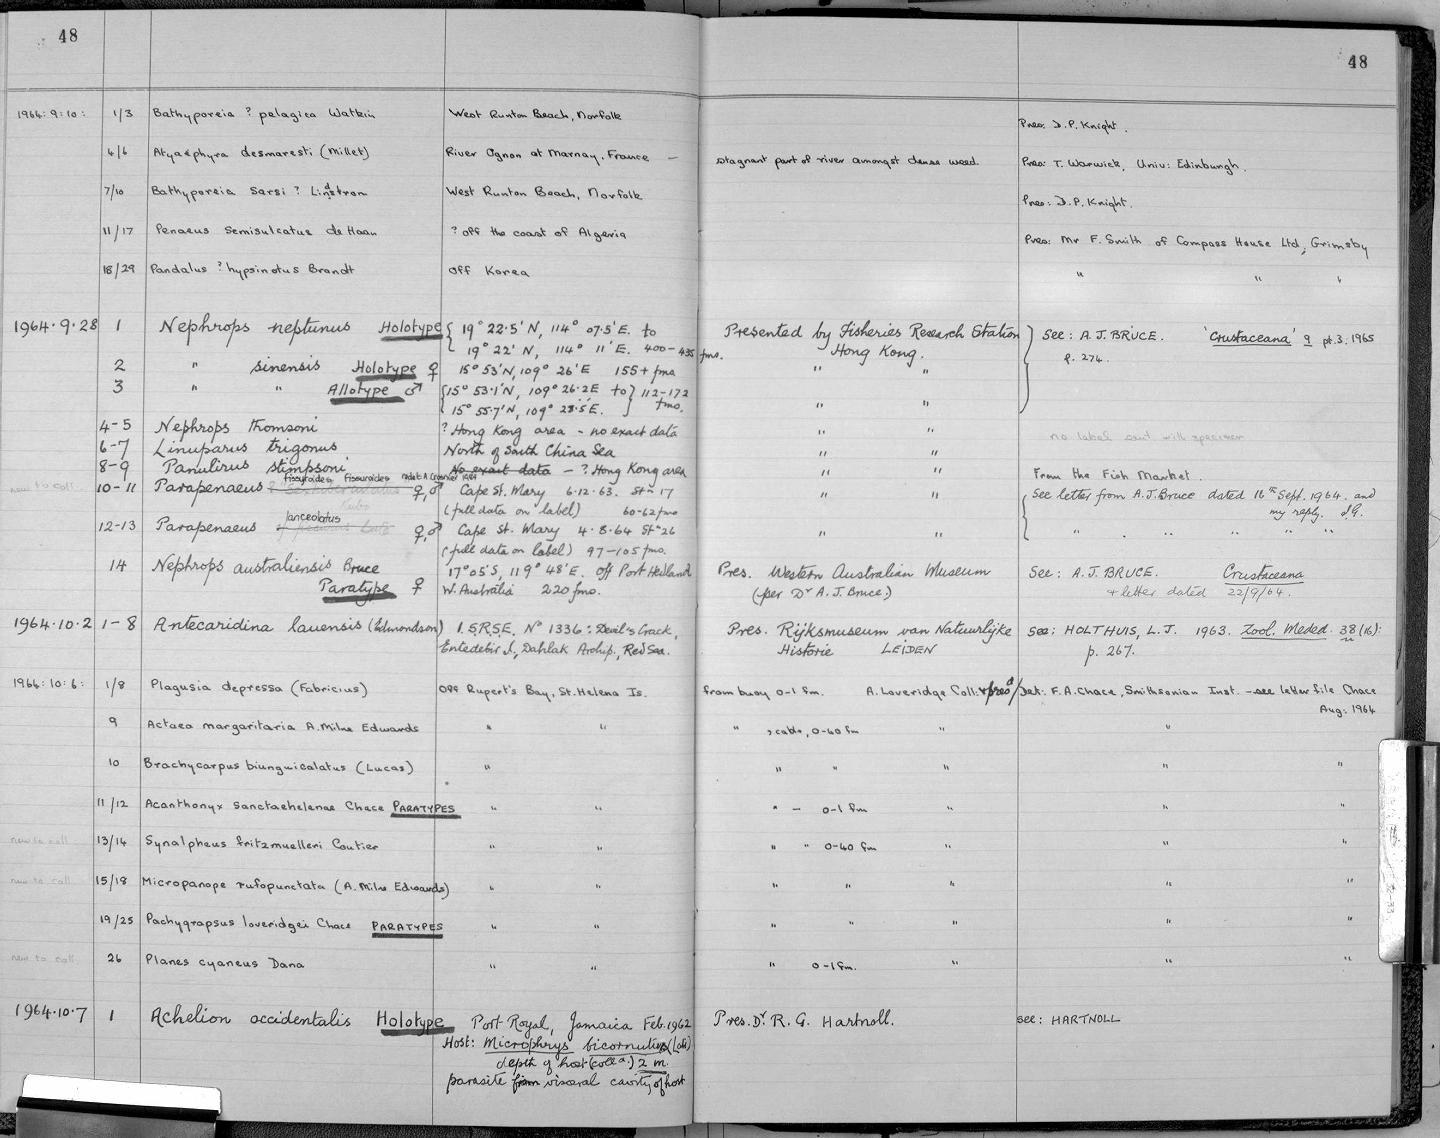 48
48
1964:9:10: 1/3 Bathyporeia ? pelagica Watkin West Runton Beach, Norfolk Pres: D.P. Knight.
4/6 Atyaephyra desmaresti (Millet) River Ognon at Marnay, France — stagnant part of river amongst dense weed. Pres: T. Warwick, Univ: Edinburgh.
7/10 Bathyporeia sarsi ? Lindstrom West Runton Beach, Norfolk Pres: D.P. Knight.
11/17 Penaeus semisulcatus de Haan ? off the coast of Algeria Pres: Mr F. Smith of Compass House Ltd, Grimsby
18/29 Pandalus ? hypsinotus Brandt off Korea " " "
1964.9.28 1 Nephrops neptunus Holotype { 19° 22.5' N, 114° 07.5' E. to Presented by Fisheries Research Station See: A.J. BRUCE. 'Crustaceana' 9 pt.3, 1965
19° 22' N, 114° 11' E. 400-435 fms. Hong Kong. p. 274.
2 " sinensis Holotype ♀ 15° 53'N, 109° 26'E 155+ fms " "
3 " " Allotype ♂ {15° 53.1'N, 109° 26.2E to} 112-172
15° 55.7'N, 109° 28.5'E. } fms. " "
4-5 Nephrops thomsoni ? Hong Kong area - no exact data " " no label sent with specimen
6-7 Linuparus trigonus North of South China Sea " "
8-9 Panulirus stimpsoni No exact data - ? Hong Kong area " " From the Fish Market.
fissuroides Fissuroides redet. A Crosnier 1984
new to coll. 10-11 Parapenaeus ♀,♂ Cape St. Mary 6.12.63. Stn 17 " " { See letter from A.J. Bruce dated 16th Sept. 1964. and
(full data on label) 60-62 fms my reply. I.G.
lanceolatus
12-13 Parapenaeus ♀,♂ Cape St. Mary 4.8.64 Stn 26 " " " " " " "
(full data on label) 97-105 fms.
14 Nephrops australiensis Bruce 17°05'S, 119° 48'E. off Port Hedland Pres. Western Australian Museum See: A.J. BRUCE. Crustaceana
Paratype ♀ W. Australia 220 fms. (per Dr A.J. Bruce.) + letter dated 22/9/64.
1964.10.2 1-8 Antecaridina lauensis (Edmondson) I.S.R.S.E. No 1336: Devil's Crack, Pres. Rijksmuseum van Natuurlijke See: HOLTHUIS, L.J. 1963. Zool. Meded. 38 (16):
Entedebir I., Dahlak Archip., Red Sea. Historie LEIDEN p. 267.
1964:10:6: 1/8 Plagusia depressa (Fabricius) Off Rupert's Bay, St. Helena Is. from buoy 0-1 fm. A. Loveridge Coll: & presd / Det: F.A. Chace, Smithsonian Inst. - see letter file Chace
Aug: 1964
9 Actaea margaritaria A. Milne Edwards " " " , cable, 0-40 fm " "
10 Brachycarpus biunguiculatus (Lucas) " " " " " "
11/12 Acanthonyx sanctaehelenae Chace PARATYPES " " " - 0-1 fm " " "
new to coll 13/14 Synalpheus fritzmuelleri Coutier " " " " 0-40 fm " " "
new to coll 15/18 Micropanope rufopunctata (A. Milne Edwards) " " " " " " "
19/25 Pachygrapsus loveridgei Chace PARATYPES " " " " " " "
new to coll 26 Planes cyaneus Dana " " " 0-1 fm. " " "
1964.10.7 1 Achelion occidentalis Holotype Port Royal, Jamaica Feb. 1962 Pres. Dr. R. G. Hartnoll. See: HARTNOLL
Host: Microphrys bicornutus (Latr)
depth of host (colld.) 2 m.
parasite from visceral cavity of host